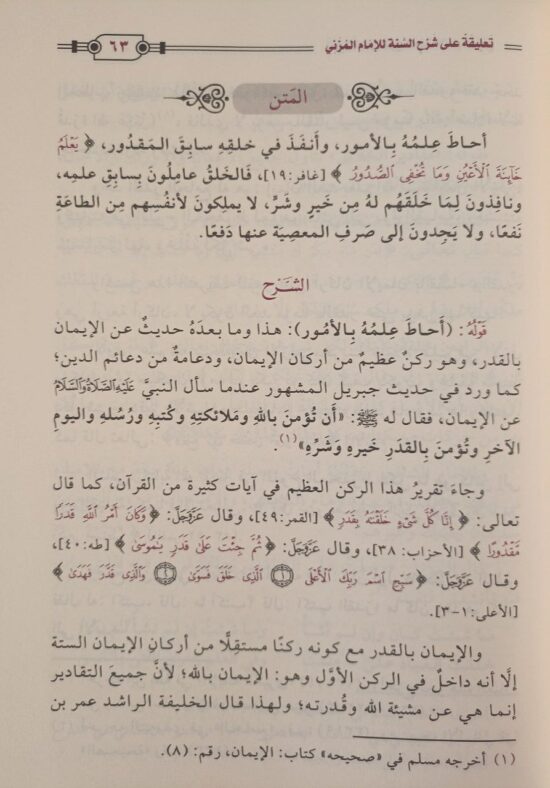 تعليقة على شرح السنة للإمام المزني
٦٣
المَتن
أحاطَ عِلمُهُ بِالأمور، وأَنفَذَ في خلقِهِ سابِقَ المَقدُور، ﴿ يَعْلَمُ
خَآئِنَةَ ٱلْأَعْيُنِ وَمَا تُخْفِي ٱلصُّدُورُ ﴾ [غافر:١٩]، فَالخَلقُ عامِلُونَ بِسابِقِ علمِه،
ونافِذونَ لِمَا خَلَقَهُم لهُ مِن خَيرٍ وشَرٍّ، لا يملِكونَ لأنفُسِهم مِن الطاعَةِ
نَفعًا، ولا يَجِدونَ إلى صَرفِ المعصِيَة عنها دَفعًا.
الشَّرح
قَولُهُ: (أَحَاطَ عِلمُهُ بِالأمُور): هذا وما بعدَهُ حديثٌ عن الإيمان
بالقدر، وهو ركنٌ عظيمٌ من أركان الإيمان، ودعامةٌ من دعائم الدين؛
كما ورد في حديث جبريل المشهور عندما سأل النبيَّ عَلَيْهِ الصَّلَاةُ وَالسَّلَامُ
عن الإيمان، فقال له ﷺ: «أَن تُؤمنَ باللهِ ومَلائكتِهِ وكُتبِهِ ورُسُلهِ واليومِ
الآخرِ وتُؤمنَ بِالقدَرِ خَيرِهِ وَشَرِّهِ»(١).
وجاءَ تقريرُ هذا الركن العظيم في آيات كثيرة من القرآن، كما قال
تعالى: ﴿ إِنَّا كُلَّ شَىْءٍ خَلَقْنَٰهُ بِقَدَرٍ ﴾ [القمر:٤٩]، وقال عَزَّوَجَلَّ: ﴿ وَكَانَ أَمْرُ ٱللَّهِ قَدَرًا
مَّقْدُورًا ﴾ [الأحزاب: ٣٨]، وقال عَزَّوَجَلَّ: ﴿ ثُمَّ جِئْتَ عَلَىٰ قَدَرٍ يَٰمُوسَىٰ ﴾ [طه:٤٠]،
وقال عَزَّوَجَلَّ: ﴿ سَبِّحِ ٱسْمَ رَبِّكَ ٱلْأَعْلَى ١ ٱلَّذِى خَلَقَ فَسَوَّىٰ ٢ وَٱلَّذِى قَدَّرَ فَهَدَىٰ ﴾
[الأعلى:١-٣].
والإيمان بالقدر مع كونه ركنًا مستقِلًّا من أركانِ الإيمان الستة
إلَّا أنه داخلٌ في الركن الأوَّل وهو: الإيمان بالله؛ لأنَّ جميعَ التقادير
إنما هي عن مشيئة الله وقُدرته؛ ولهذا قال الخليفة الراشد عمر بن
(١) أخرجه مسلم في «صحيحه» كتاب: الإيمان، رقم: (٨).